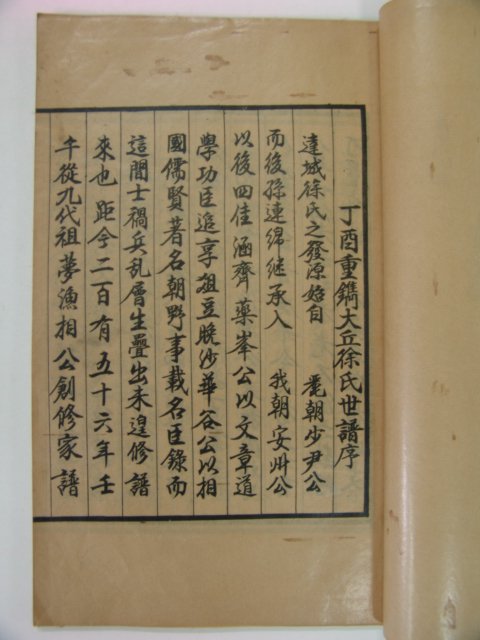 丁酉重鐫大丘徐氏世譜序
達城徐氏之發源始自 麗朝少尹公
而後孫連綿继承入 我朝安州公
以後四佳涵齋藥峯公以文章道
學功臣追享俎豆晚沙華谷公以相
國儒賢著名朝野事載名臣錄而
這間士禍兵乱層生疊出未遑修譜
來也距今二百有五十六年壬
午從九代祖夢漁相公創修家譜